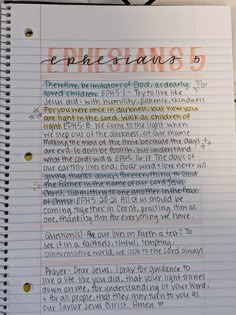 EPHESIANS 5
ephesians 5
Therefore, be imitators of God, as dearly
loved children. EPH 5:1 - Try to live like
Jesus did: with humility, patience, kindness
For you were once in darkness, but now you
are light in the Lord. Walk as children of
light EPH 5:8 We come to the light when
we step out of the darkness, of our shame
Making the most of the time because the days
are evil. So don't be foolish, but understand
what the Lord's will is EPH 5:16-17 The days of
our earthly lives end; God's word & love never will.
giving thanks always for everything to God
the Father in the name of our Lord Jesus
Christ, submitting to one another in the fear
of Christ. EPH 5:20-21 All of us should be
coming together in Christ, praising Him as
one, thanking Him for everything we have.
Question(s): Are our lives on Earth a test? To
see if in a faithless, sinful, tempting,
conformative world, we look to the Lord always.
Prayer: Dear Jesus, I pray for guidance to
live a life like you did, that your light shines
down on me, for understanding of your word,
& for all people, that they may turn to you as
our Savior Jesus Christ. Amen ♡